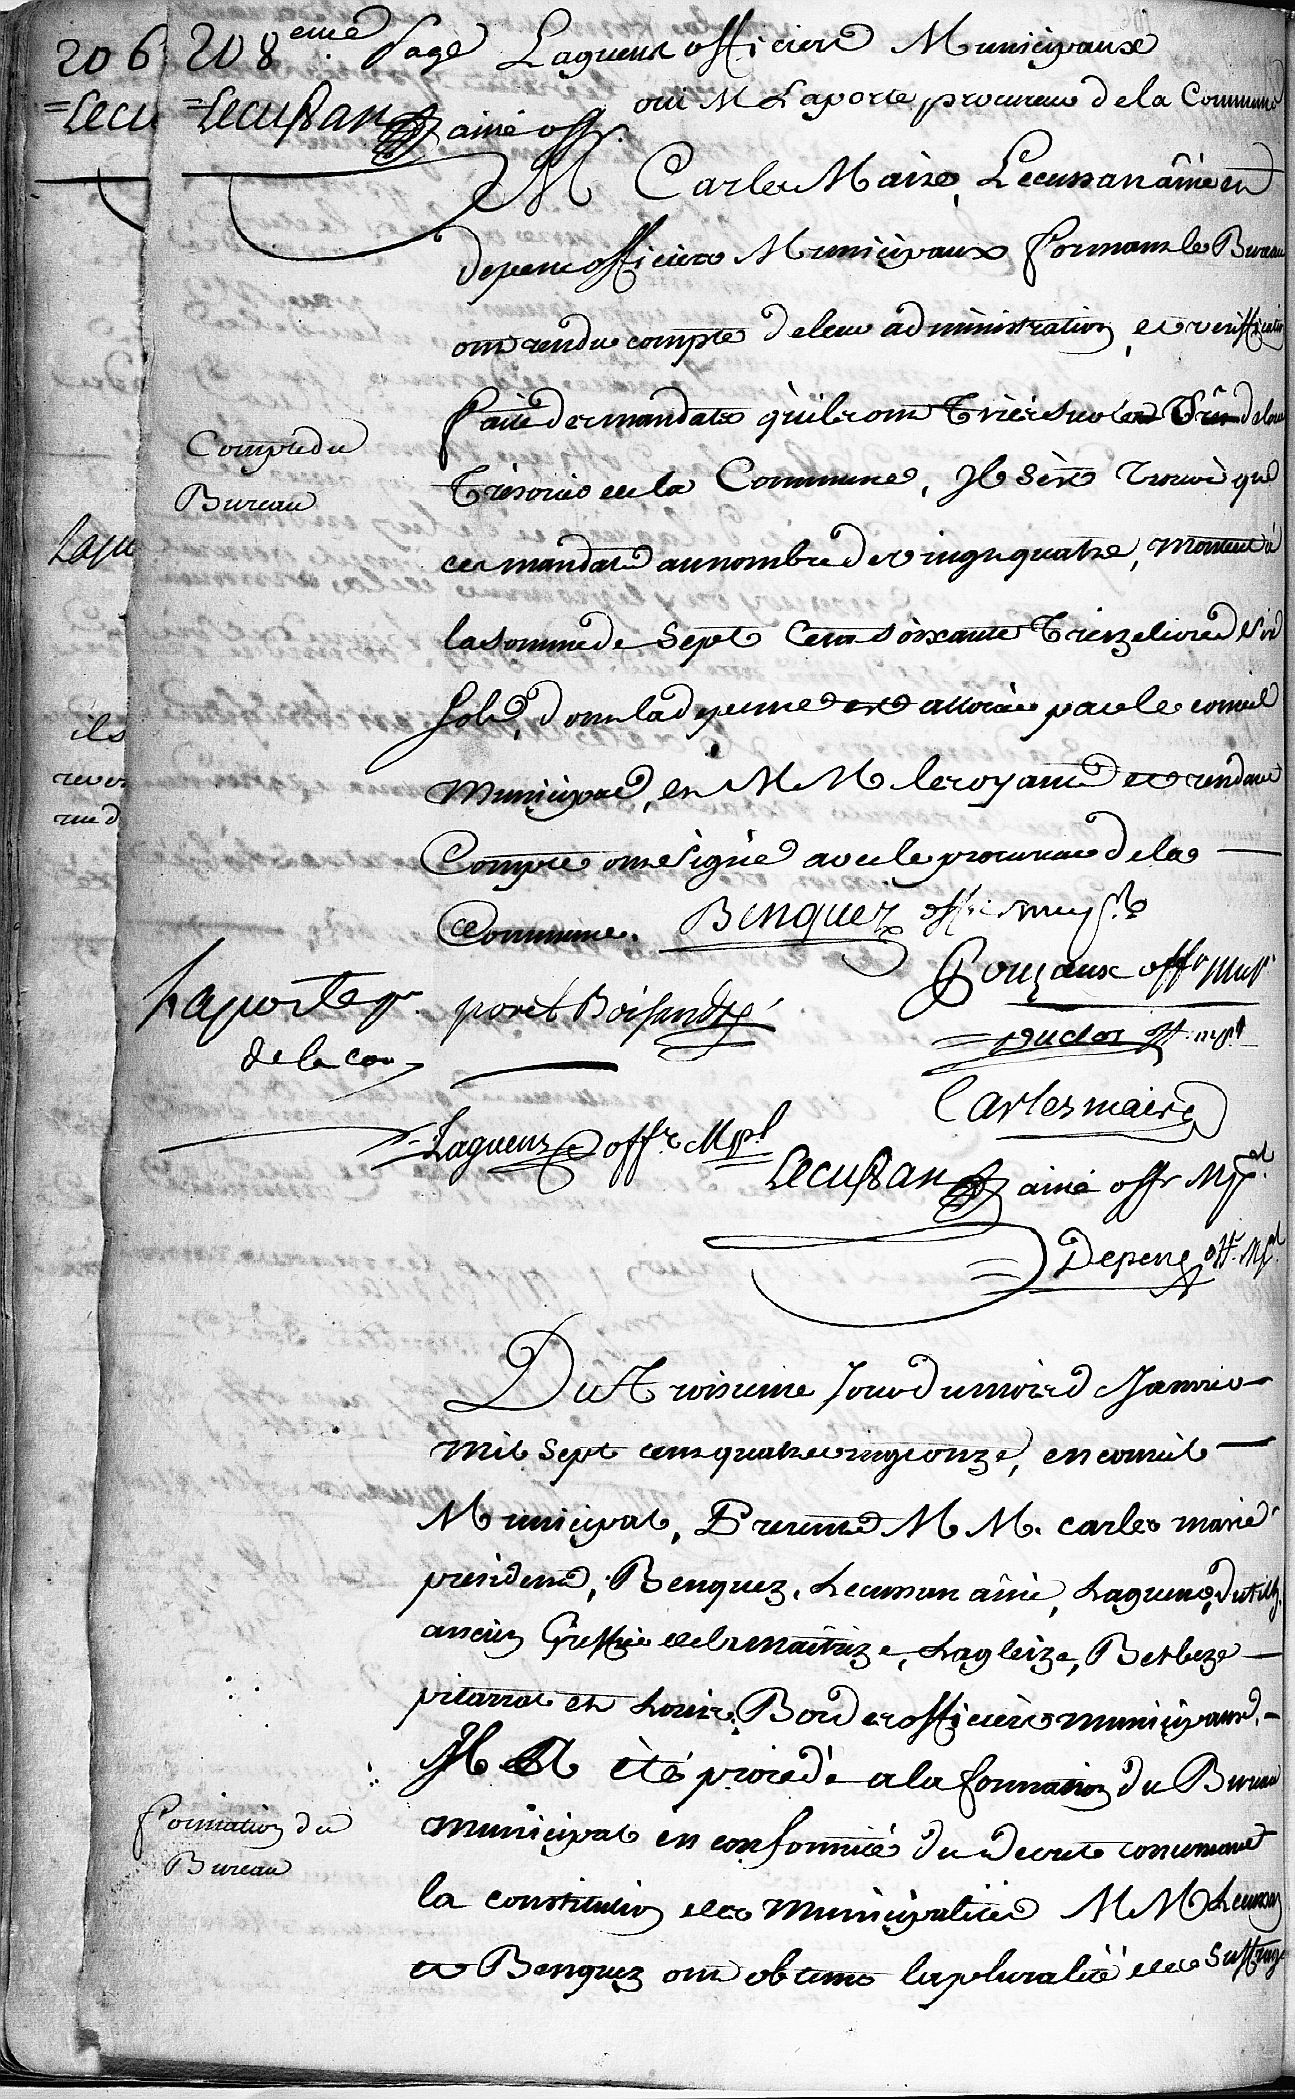 206
=Lecu
208eme page
=Lecussan ainé offr.
Lagueus officiers Municipaux
oui M Laporte, procureur de la Commune
M Carles Maire, Lecussan ainé et
depenc officiers Municipaux formant le Bureau
ont rendu compte de leur administration, et veriffication
Compte du
Bureau
faite des mandats qu'ils ont tirés sur le de la
Trésorier de la Commune, Il s'est trouvé que
Laqu
ces mandats au nombre de vingt quatre, montent à
la somme de Sept Cent soixante treize livres six
Sols, dont la depense est allouée par le conseil
ils
rever
rue d
Municipal, et M M le royant et rendant
Compte ont signé avec le procureur de la
Commune. Benquez offi. muyal
Laporte pr
de la com
poret Boisandré
Gouzaux offr mul
Duclos off. mpl
Carles maire
Lagueus offr. Mpl
Lecussan ainé offr Mpal.
Depenc off. Mpal
Du troisieme Jour du mois de Janvier
Mil Sept cens quatre vingt onze, en conseil
Municipal, Presents M M. carles maire
président, Benquez, Lecussan ainé, Lagueus, dutilh,
ancien Greffier de la maitrize, Lagleize, Berbeze
pitarrat et Louis Bordes officiers municipaux.
Il A été procédé a la formation du Bureau
formation du
Bureau
municipal en conformité du decret concernant
la constitution des Municipalités M M Lecussan
et Benquez ont obtenu la pluralité des suffrages